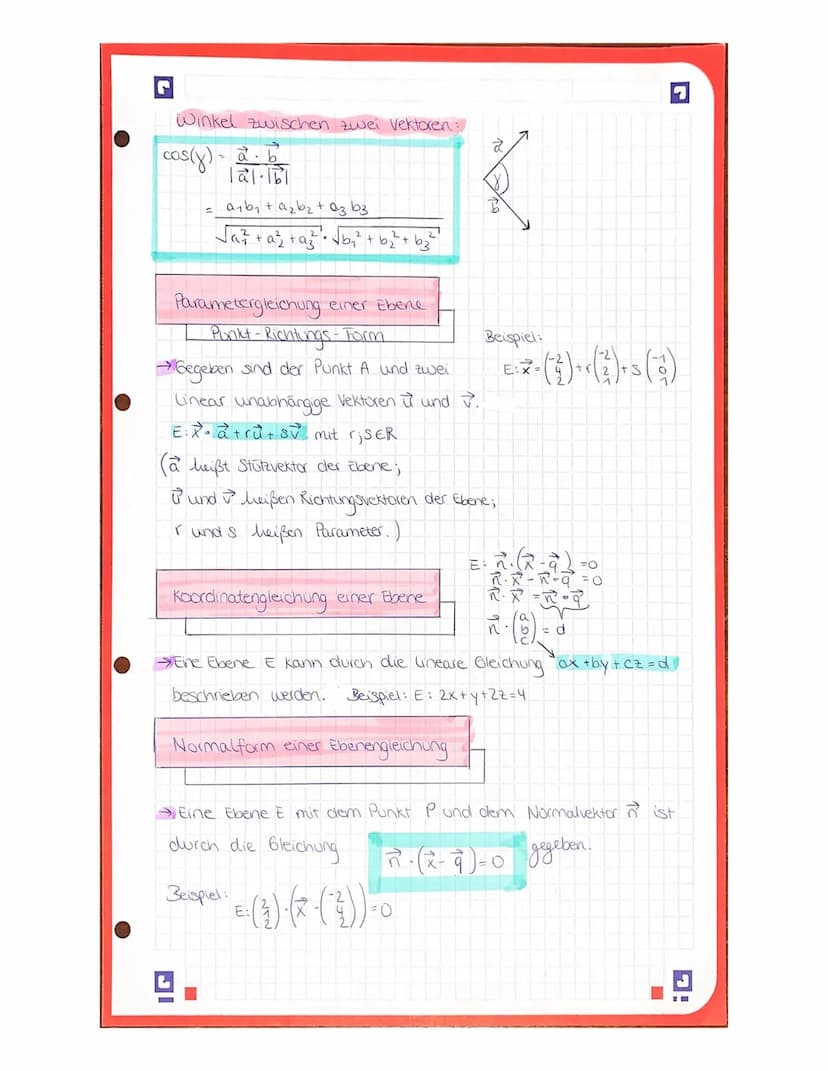 Winkel zwischen zwei Vektoren:
cos(γ) = a⃗ · b⃗ / |a⃗| · |b⃗|
= a₁b₁ + a₂b₂ + a₃b₃ / √a₁² + a₂² + a₃² · √b₁² + b₂² + b₃²
a⃗
γ
b⃗
Parametergleichung einer Ebene
Punkt-Richtungs-Form
Beispiel:
E: x⃗ = (-2 4 2) + r (-2 2 1) + s (-1 0 1)
→ Gegeben sind der Punkt A und zwei
linear unabhängige Vektoren u⃗ und v⃗.
E: x⃗ = a⃗ + ru⃗ + sv⃗ mit r;s∈R
(a⃗ heißt Stützvektor der Ebene;
u⃗ und v⃗ heißen Richtungsvektoren der Ebene;
r und s heißen Parameter.)
E: n⃗ · (x⃗ - q⃗) = 0
n⃗ · x⃗ - n⃗ · q⃗ = 0
n⃗ · x⃗ = n⃗ · q⃗
n⃗ · (a b c) = d
Koordinatengleichung einer Ebene
→ Eine Ebene E kann durch die lineare Gleichung ax + by + cz = d
beschrieben werden. Beispiel: E: 2x + y + 2z = 4
Normalform einer Ebenengleichung
→ Eine Ebene E mit dem Punkt P und dem Normalvektor n⃗ ist
durch die Gleichung n⃗ · (x⃗ - q⃗) = 0 gegeben.
Beispiel:
E: (2 1 2) · (x⃗ - (-2 4 2)) = 0